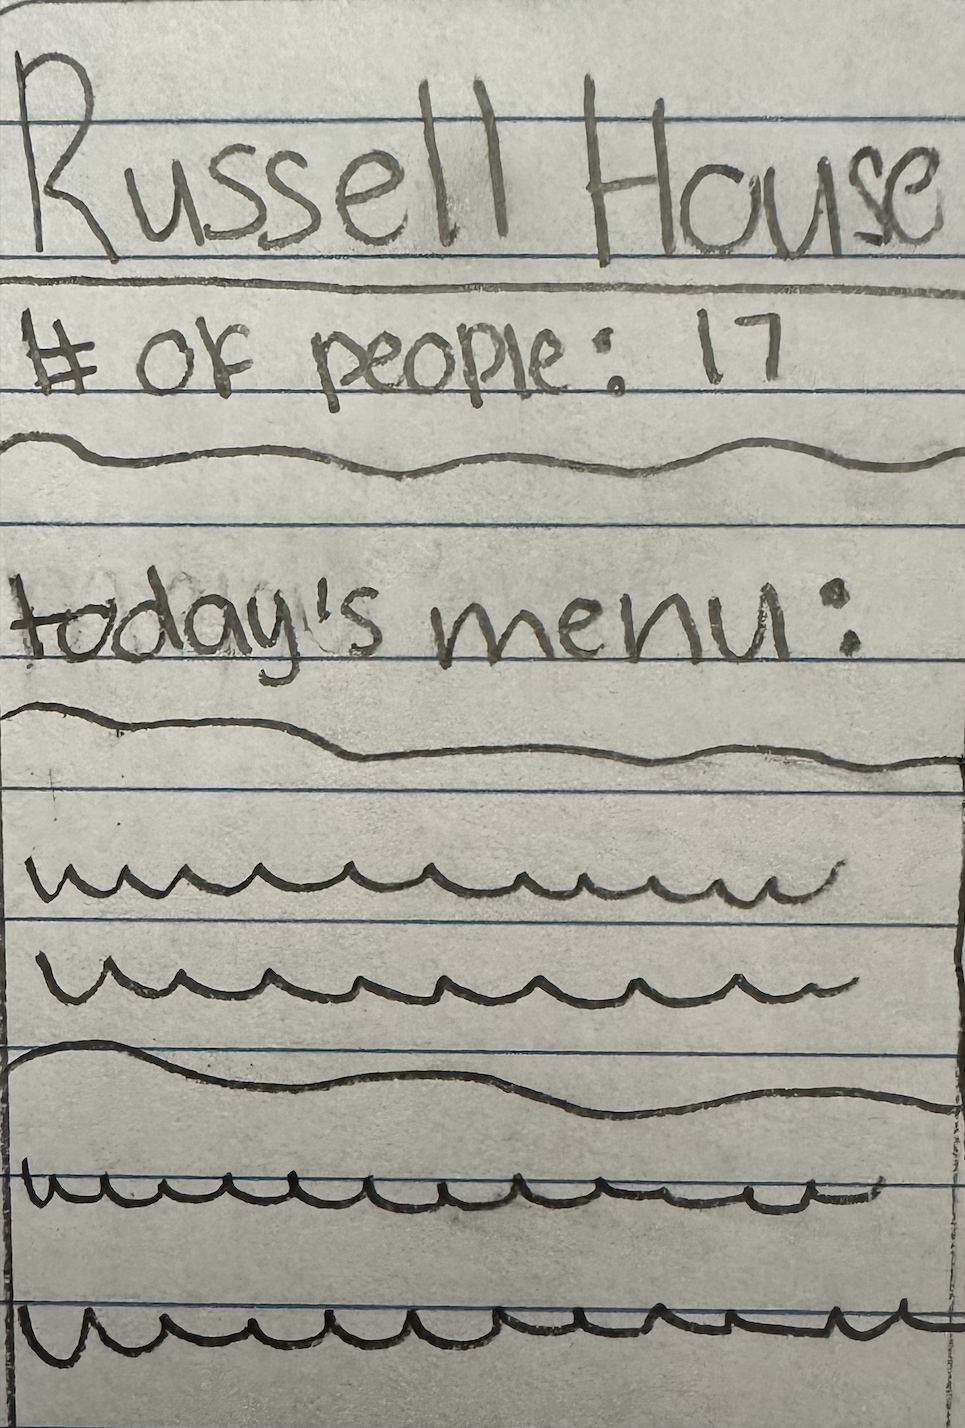 Russell House
# of people: 17
today's menu: